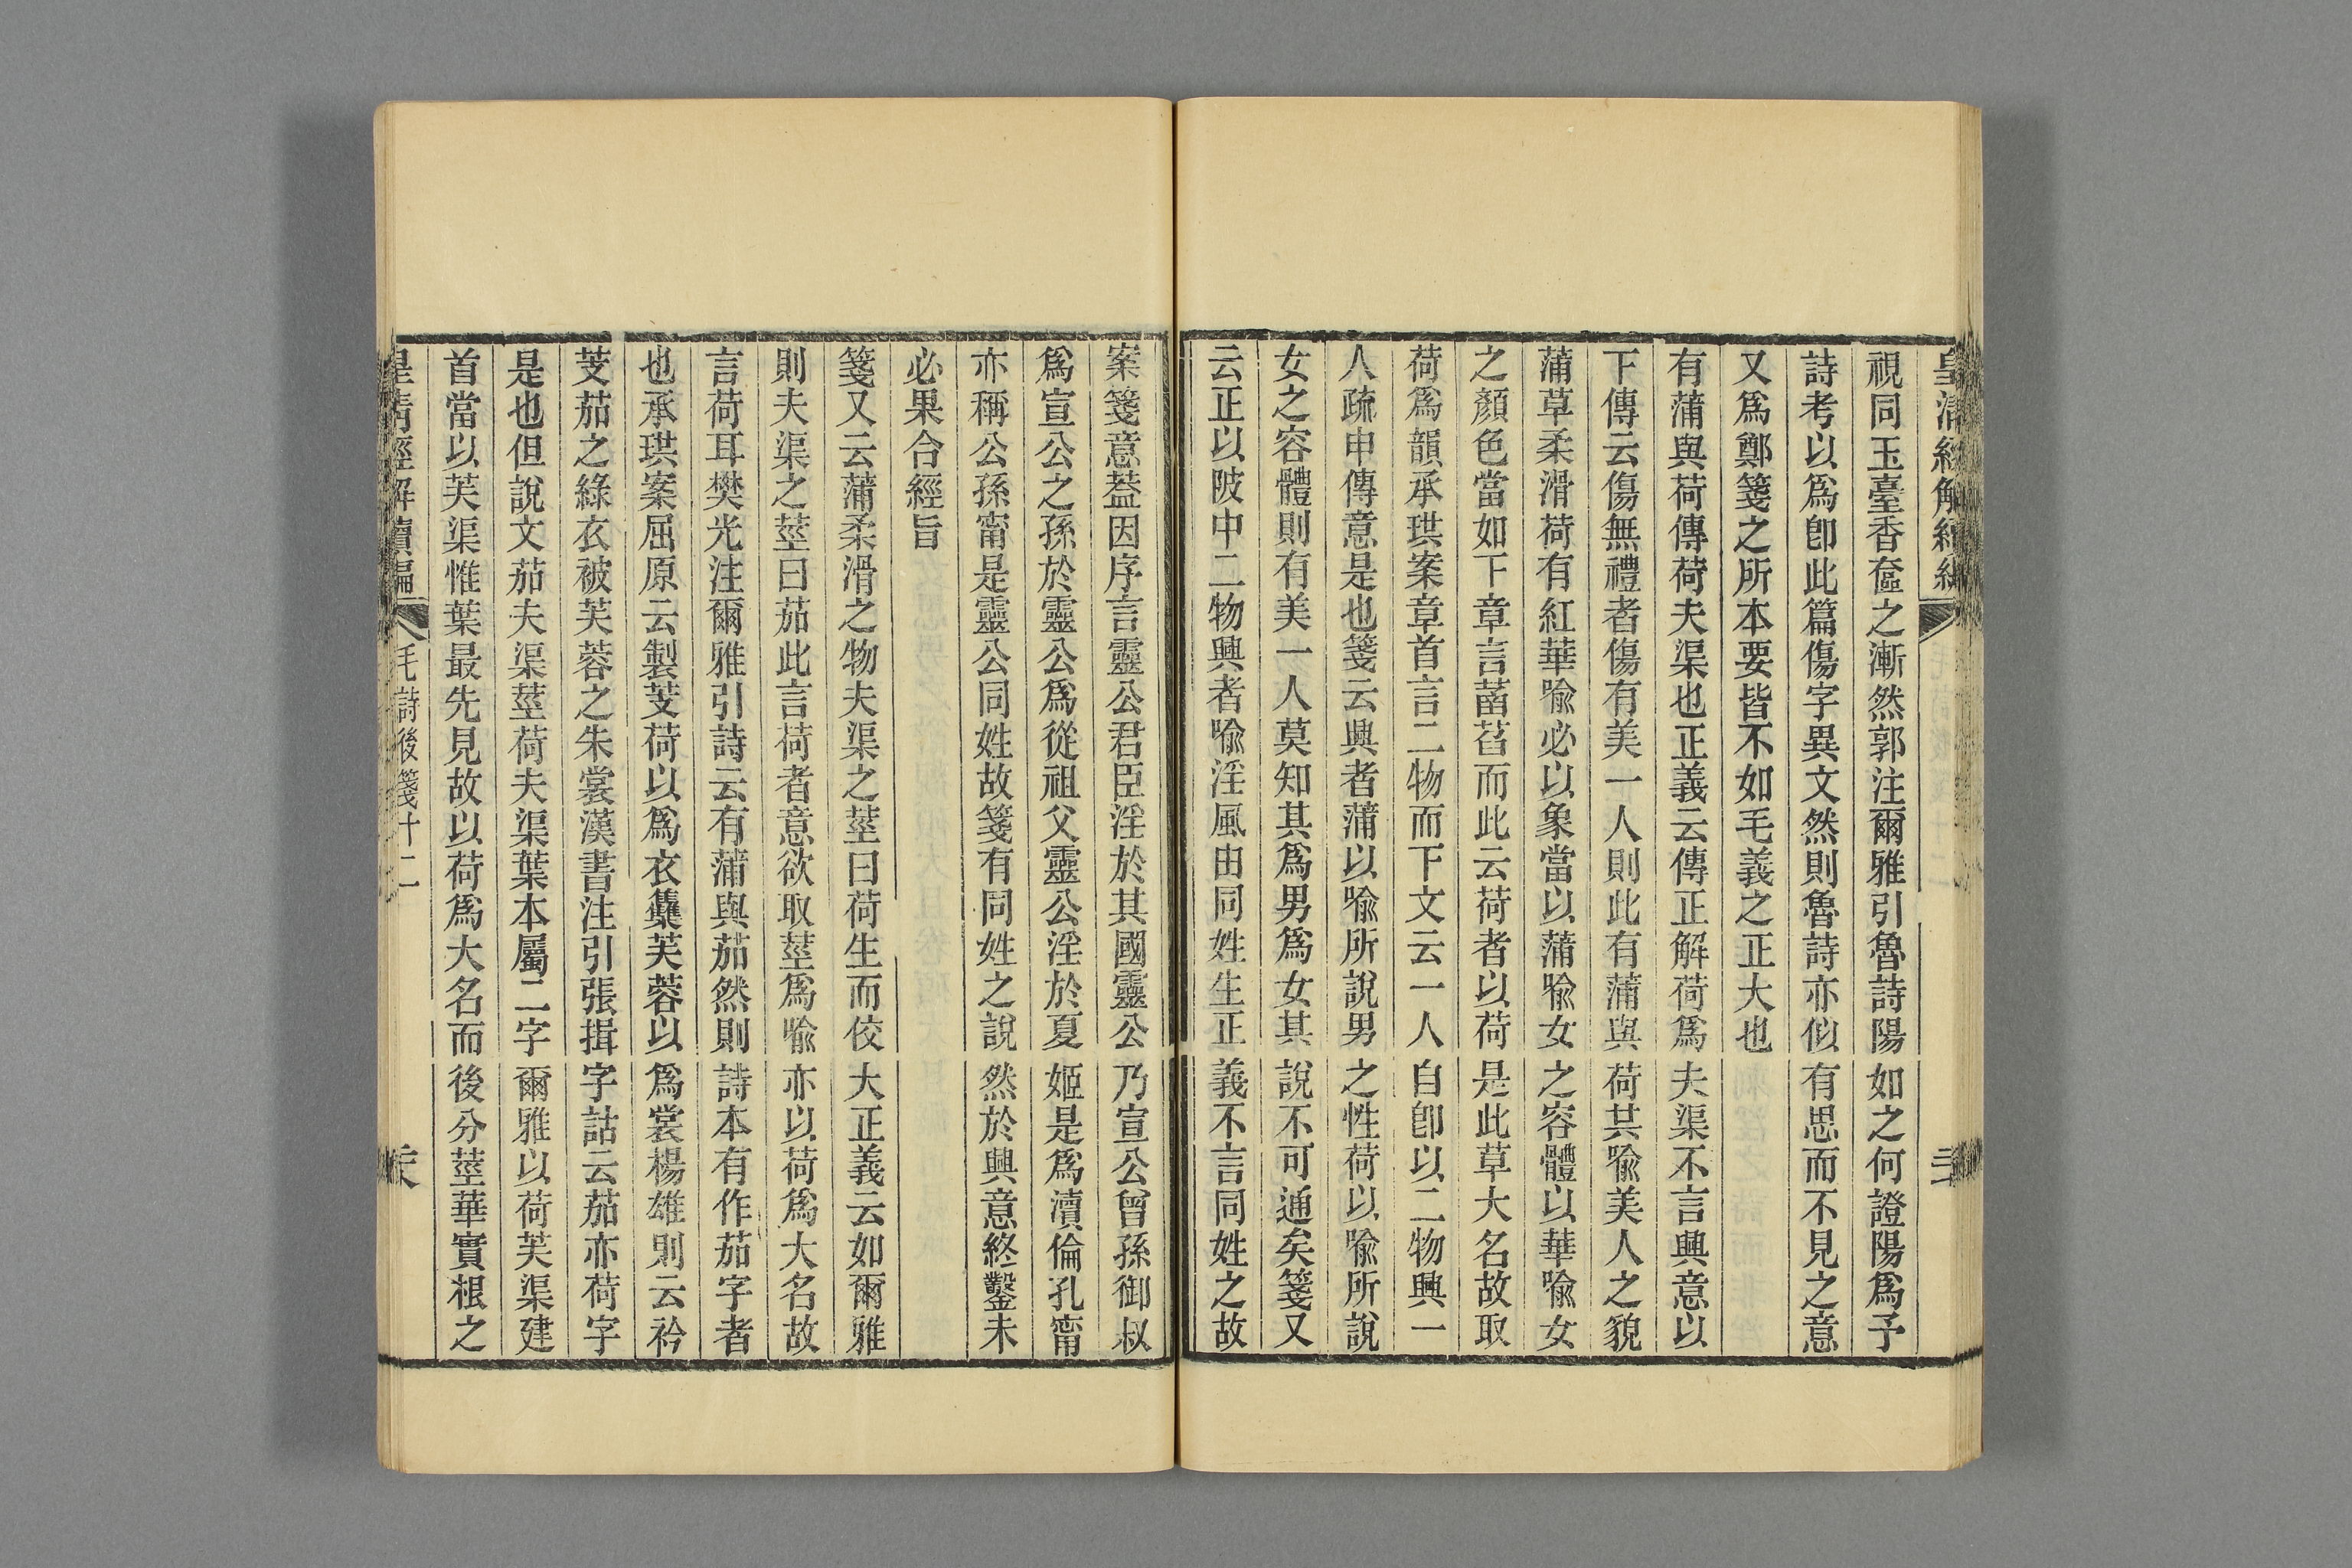 皇清經解續編
視同玉臺香奩之漸然郭注爾雅引魯詩陽如之何證陽爲予
詩考以爲卽此篇傷字異文然則魯詩亦似有思而不見之意
又爲鄭箋之所本要皆不如毛義之正大也
有蒲與荷傳荷夫渠也正義云傳正解荷爲夫渠不言興意以
下傳云傷無禮者傷有美一人則此有蒲與荷其喩美人之貌
蒲草柔滑荷有紅華喩必以象當以蒲喩女之容體以華喩女
之顏色當如下章言菡萏而此云荷者以荷是此草大名故取
荷爲韻承珙案章首言二物而下文云一人自卽以二物興一
人疏申傳意是也箋云興者蒲以喩所說男之性荷以喩所說
女之容體則有美一人莫知其爲男爲女其說不可通矣箋又
云正以陂中二物興者喩淫風由同姓生正義不言同姓之故
案箋意葢因序言靈公君臣淫於其國靈公乃宣公曾孫御叔
爲宣公之孫於靈公爲從祖父靈公淫於夏姬是爲瀆倫孔甯
亦稱公孫甯是靈公同姓故箋有同姓之說然於興意終鑿未
必果合經旨
箋又云蒲柔滑之物夫渠之莖曰荷生而佼大正義云如爾雅
則夫渠之莖曰茄此言荷者意欲取莖爲喩亦以荷爲大名故
言荷耳樊光注爾雅引詩云有蒲與茄然則詩本有作茄字者
也承珙案屈原云製芰荷以爲衣集芙蓉以爲裳楊雄則云衿
芰茄之綠衣被芙蓉之朱裳漢書注引張揖字詁云茄亦荷字
是也但說文茄夫渠莖荷夫渠葉本屬二字爾雅以荷芙渠建
首當以芙渠惟葉最先見故以荷爲大名而後分莖華實根之
皇清經解續編 毛詩後箋十二